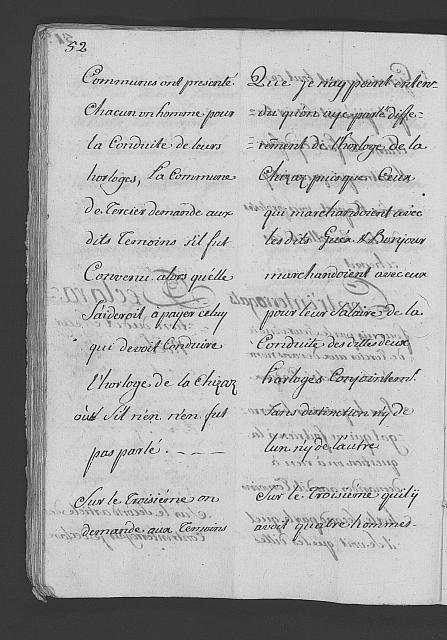 52
Communes ont presenté
Chacun un homme pour
la Conduite de leurs
horloges, La Commune
de Tercier demande aux
dits Temoins s'il fut
Convenu alors qu'elle
s'aideroit a payer celuy
qui devoit Conduire
l'horloge de la Chizaz
ou s'il n'en n'en fut
pas parlé. - — —
Sur le Troisiéme on
demande aux Temoins
Que je n'ay point enten-
du qu'on aye parlé diffe-
=remment de l'horloge de la
Chizaz puisque Ceux
qui marchandoient avec
lesdits Guéx & Bonjour
marchandoient avec eux
pour leur Salaire de la
Conduite desdittes deux
horloges Conjointemt.
sans distinction ny de
l'un ny de l'autre
Sur le Troisiéme qu'il y
avoit quatre hommes